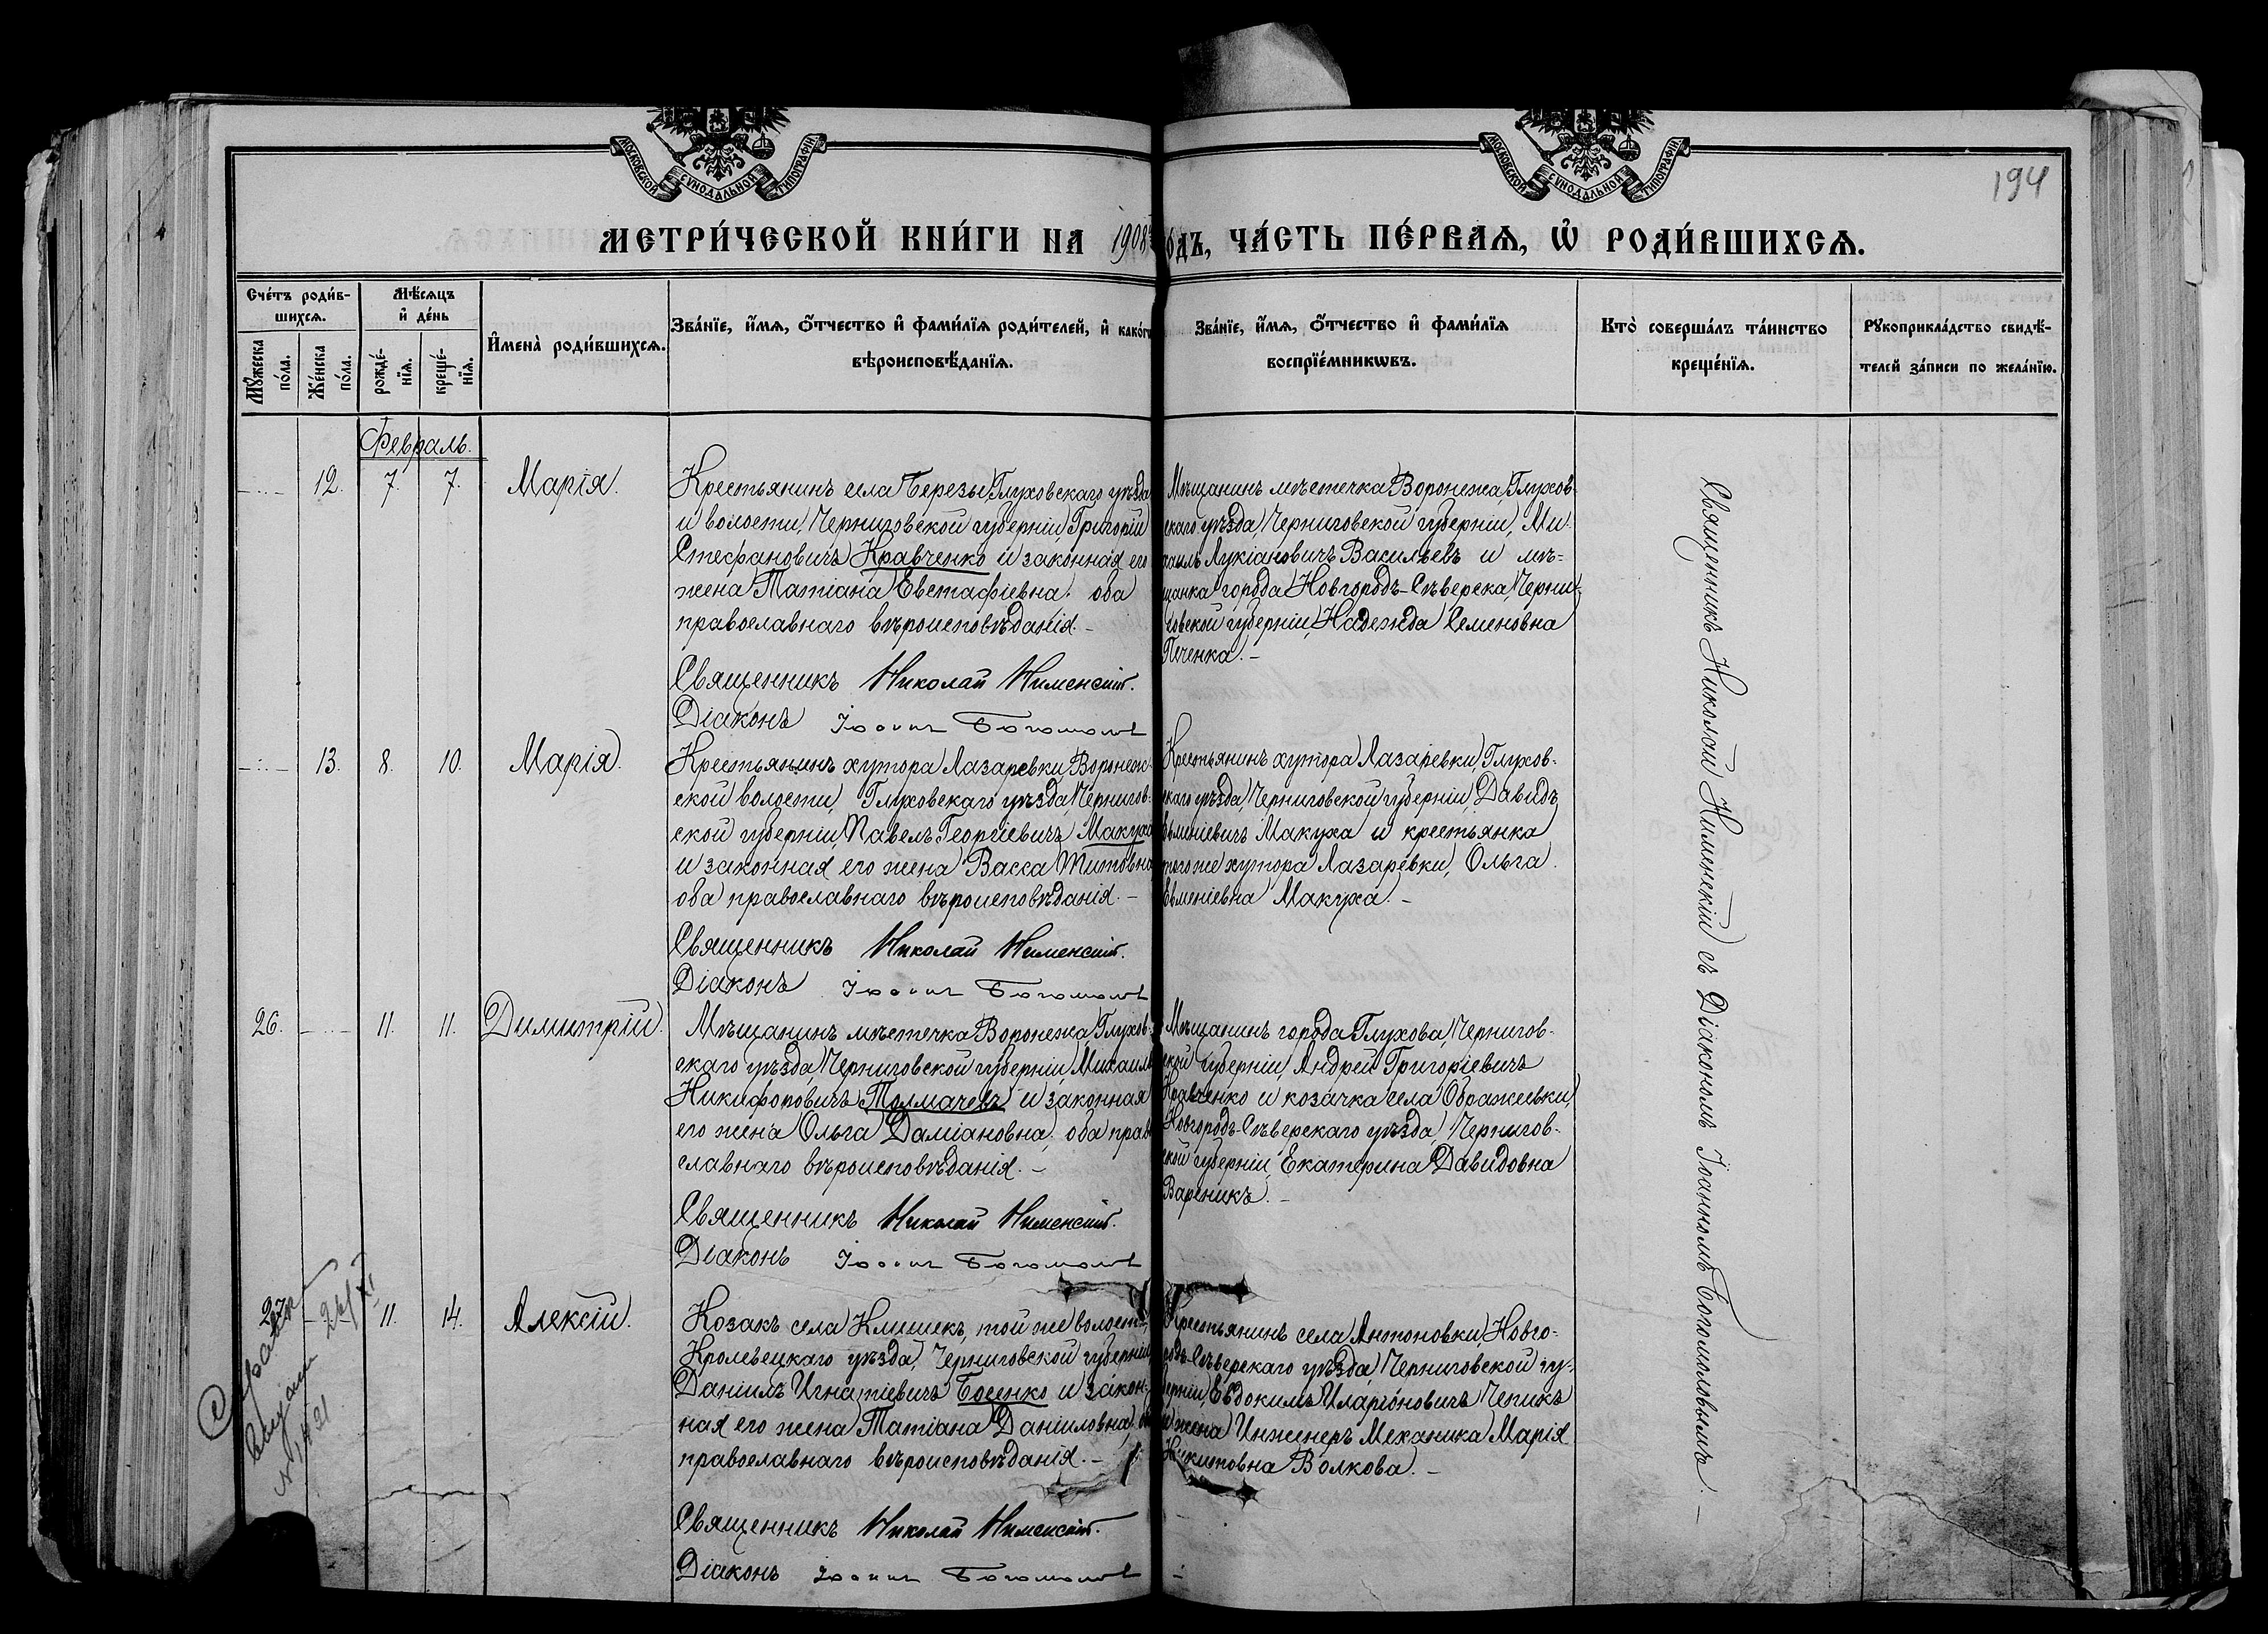 МОСКОВСКОЙ СѴНОДАЛЬНОЙ ТИПОГРАФІИ
МОСКОВСКОЙ СѴНОДАЛЬНОЙ ТИПОГРАФІИ
194
МЕТРИ́ЧЕСКОЙ КНИ́ГИ НА 1908 ГОДЪ, ЧА́СТЬ ПЕ́РВАЯ, Ѡ РОДИ́ВШИХСЯ.
Сче́тъ роди́в-
шихся.
Мѣ́сяцъ
и҆ де́нь
Му́жеска по́ла.
Же́нска по́ла.
рожде́-
нїя.
креще́-
нїя.
И҆мена̀ роди́вшихся.
Зва́нїе, и҆́мя, ѻ҆́тчество и҆ фами́лїя роди́телей, и҆ како́гѡ
вѣроисповѣ́данїя.
Зва́нїе, и҆́мя, ѻ҆́тчество и҆ фами́лїя
воспрїе́мникѡвъ.
Кто̀ соверша́лъ та́инство
креще́нїя.
Рꙋкоприкла́дство свидѣ́-
телей за́писи по жела́нїю.
Февраль.
12. 7. 7. Марія.
Крестьянинъ села Березы, Глуховскаго уѣзда
и волости, Черниговской губерніи, Григорій
Стефановичъ Кравченко и законная его
жена Татіана Евстафіевна; оба
православнаго вѣроисповѣданія. –
Священникъ Николай Нименскій.
Діаконъ Іоаннъ Богомоловъ
Мѣщанинъ мѣстечка Воронежа, Глухов-
скаго уѣзда, Черниговской губерніи, Ми-
хаилъ Лукіановичъ Васильевъ и мѣ-
щанка города Новгородъ-Сѣверска, Черни-
говской губерніи, Надежда Семеновна
Печенка. –
13. 8. 10. Марія.
Крестьянинъ хутора Лазаревки, Воронеж-
ской волости, Глуховскаго уѣзда, Чернигов-
ской губерніи, Павелъ Георгіевичъ Макуха
и законная его жена Васса Титовна
оба православнаго вѣроисповѣданія. –
Священникъ Николай Нименскій.
Діаконъ Іоаннъ Богомоловъ
Крестьянинъ хутора Лазаревки, Глухов-
скаго уѣзда, Черниговской губерніи, Давидъ
Евменіевичъ Макуха и крестьянка
того же хутора Лазаревки, Ольга
Евменіевна Макуха. –
26. 11. 11. Димитрій.
Мѣщанинъ мѣстечка Воронежа, Глухов-
скаго уѣзда, Черниговской губерніи, Михаилъ
Никифоровичъ Толмачевъ и законная
его жена Ольга Даміановна; оба право-
славнаго вѣроисповѣданія. –
Священникъ Николай Нименскій.
Діаконъ Іоаннъ Богомоловъ
Мѣщанинъ города Глухова, Чернигов-
ской губерніи, Андрей Григоріевичъ
Кравченко и козачка села Ображеевки,
Новгородъ-Сѣверскаго уѣзда, Чернигов-
ской губерніи, Екатерина Давидовна
Вареникъ. –
27. 11. 14. Алексій.
Козакъ села Клишекъ, той же волости,
Кролевецкаго уѣзда, Черниговской губерніи,
Даніилъ Игнатіевичъ Босенко и закон-
ная его жена Татіана Даніиловна, оба
православнаго вѣроисповѣданія. –
Священникъ Николай Нименскій.
Діаконъ Іоаннъ Богомоловъ
Крестьянинъ села Антоновки, Новго-
родъ-Сѣверскаго уѣзда, Черниговской гу-
берніи, Евдокимъ Иларіоновичъ Чепикъ
и жена Инженеръ Механика Марія
Никитовна Волкова. –
Священникъ Николай Нименскій съ Діакономъ Іоанномъ Богомоловымъ. –